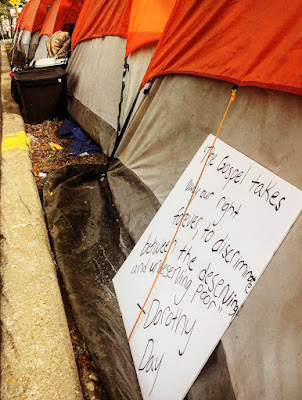 The Gospel takes
away our right
forever to discriminate
between the deserving
and undeserving poor"
- Dorothy
Day